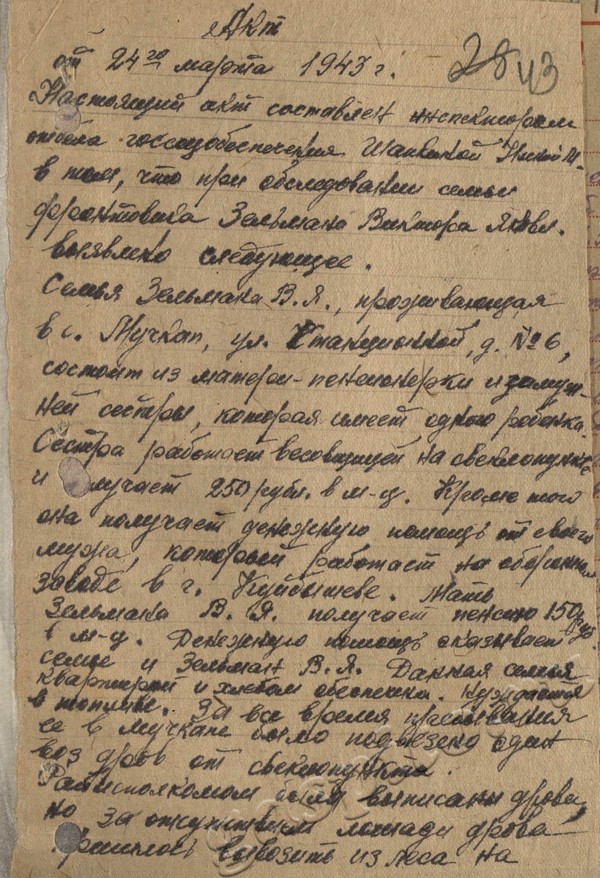 Акт
от 24го марта 1943 г.
28 43
Настоящий акт составлен инспектором
отдела гособеспечения Шапкиной
в том, что при обследовании семьи
фронтовика Зельмана Виктора Яковл.
выявлено следующее.
Семья Зельмана В.Я., проживающая
в с. Мучкап, ул. Станционной, д. №6,
состоит из матери-пенсионерки и замуж-
ней сестры, которая имеет одного ребенка.
Сестра работает весовщицей на свеклопункте
и получает 250 рубл. в м-ц. Кроме того
она получает денежную помощь от своего
мужа, который работает на оборонном
заводе в г. Куйбышеве. Мать
Зельмана В.Я. получает пенсию 150 руб
в м-ц. Денежную помощь оказывает
семье и Зельман В.Я. Данная семья
квартирой и хлебом обеспечена. Нуждается
в топливе. За все время пребывания
ее в Мучкапе было подвезено один
воз дров от свеклопункта.
Райисполкомом были выписаны дрова,
но за отсутствием лошади дрова
пришлось вывозить из леса на